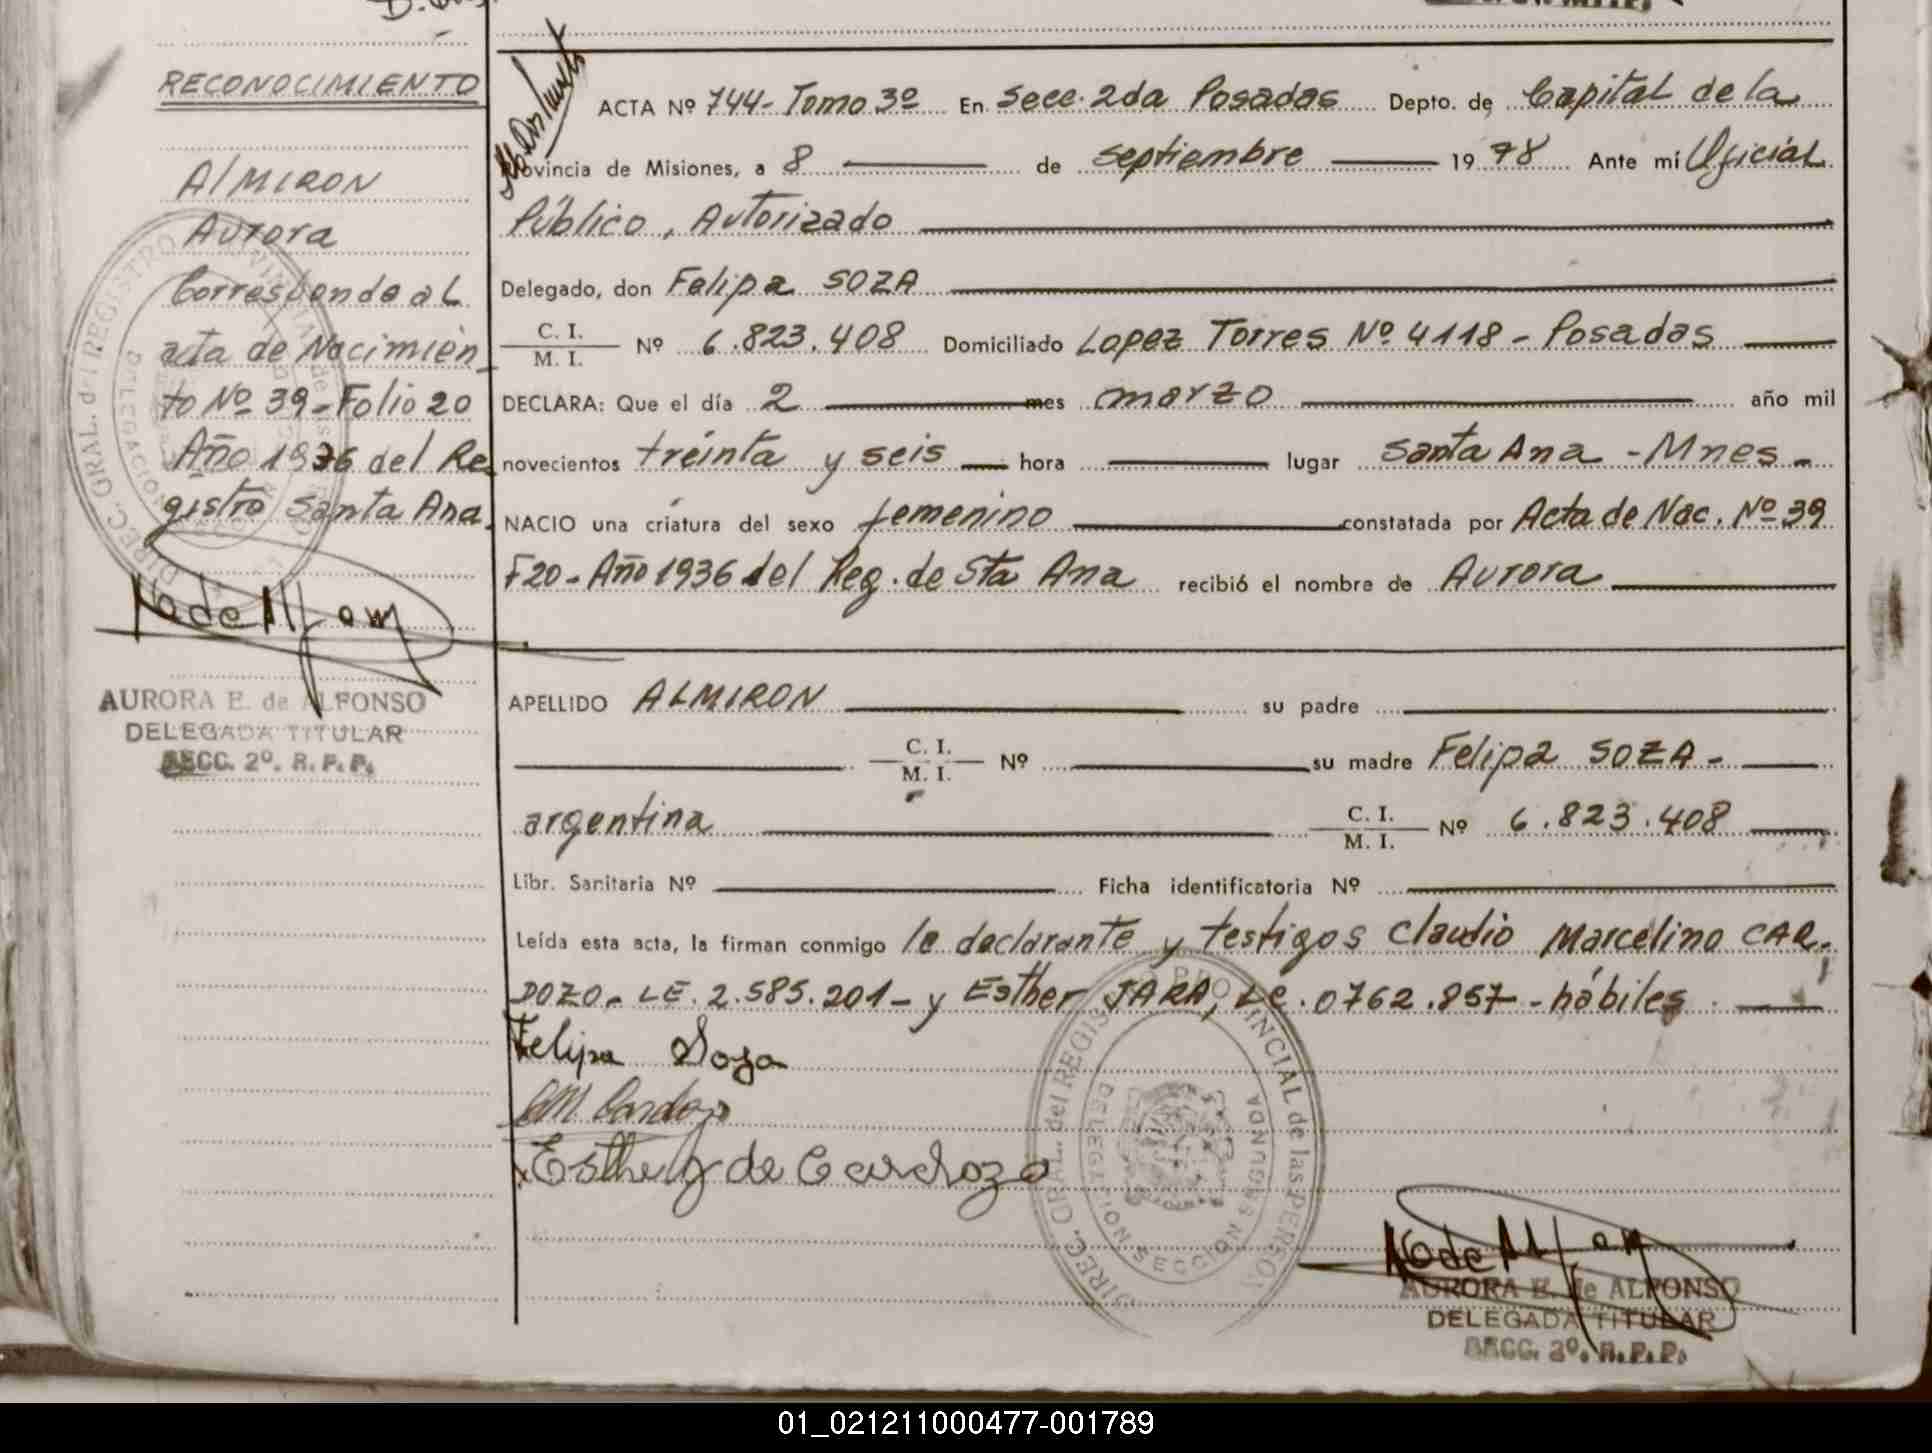 RECONOCIMIENTO
AlMIRON
Aurora
Corresponde al
acta de Nacimien
to Nº 39 - Folio 20
Año 1936 del Re
gistro Santa Ana.
AURORA E. de ALFONSO
DELEGADA TITULAR
SECC. 2º. R. P. P.
ACTA Nº 744 - Tomo 3º En Secc. 2da Posadas Depto. de Capital de la
Provincia de Misiones, a 8 de septiembre 1978 Ante mí Oficial
Público, Autorizado
Delegado, don Felipa SOZA
C. I.
M. I. Nº 6.823.408 Domiciliado Lopez Torres Nº 4118 - Posadas
DECLARA: Que el día 2 mes marzo año mil
novecientos treinta y seis hora lugar Santa Ana - Mnes -
NACIO una criatura del sexo femenino constatada por Acta de Nac. Nº 39
F20 - Año 1936 del Reg. de Sta Ana recibió el nombre de Aurora
APELLIDO ALMIRON su padre
C. I.
M. I. Nº su madre Felipa SOZA -
argentina C. I.
M. I. Nº 6.823.408
Libr. Sanitaria Nº Ficha identificatoria Nº
Leída esta acta, la firman conmigo la declarante y testigos Claudio Marcelino CAR-
DOZO - LE. 2.585.201 - y Esther JARA, Le. 0762.857 - hábiles
Felipa Soza
CM. Cardozo
Esther J de Cardozo
DIREC. GRAL. del REGISTRO PROVINCIAL de las PERSONAS
DELEGACION SECCION SEGUNDA
AURORA E. de ALFONSO
DELEGADA TITULAR
SECC. 2º. R. P. P.
01_021211000477-001789